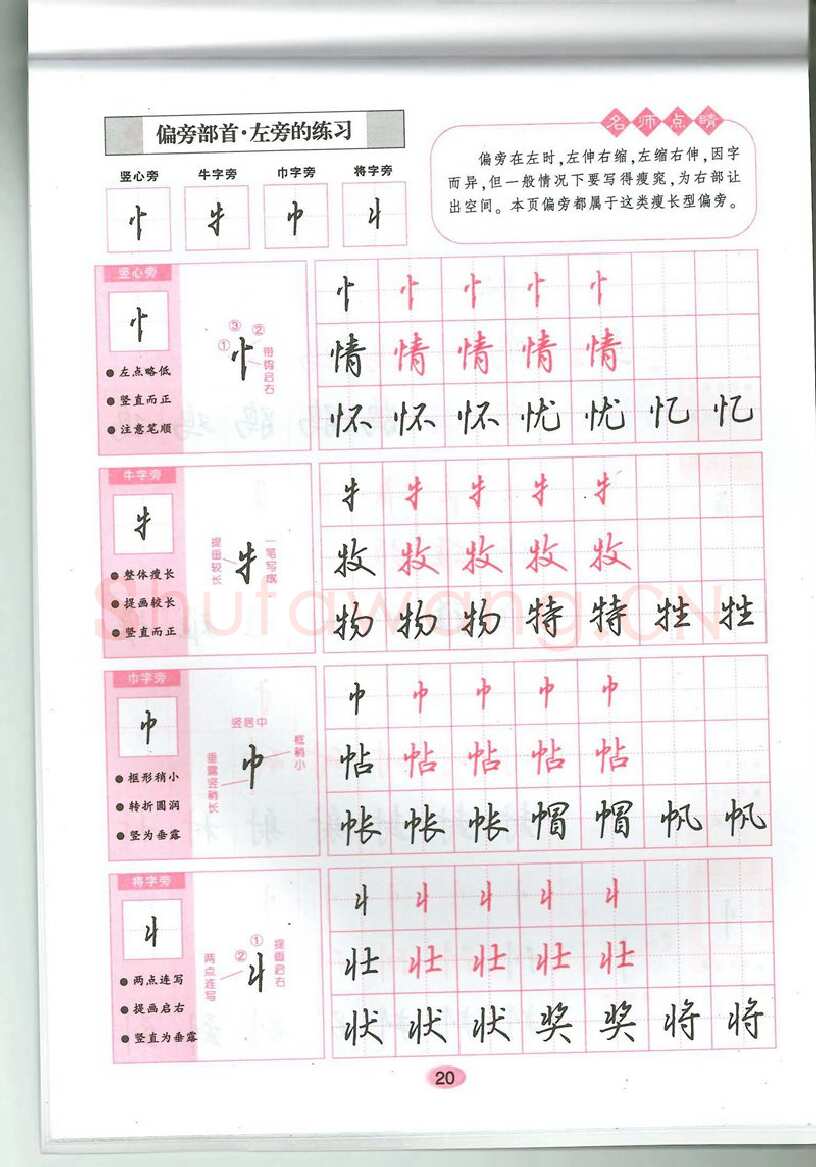 偏旁部首·左旁的练习
竖心旁 牛字旁 巾字旁 将字旁
忄 牜 巾 丬
名师点睛
偏旁在左时,左伸右缩,左缩右伸,因字
而异,但一般情况下要写得瘦窄,为右部让
出空间。本页偏旁都属于这类瘦长型偏旁。
竖心旁
忄
●左点略低
●竖直而正
●注意笔顺
① ③ ②
忄
带钩启右
忄 忄 忄 忄 忄
情 情 情 情 情
怀 怀 怀 忧 忧 忆 忆
牛字旁
牜
●整体瘦长
●提画较长
●竖直而正
提画较长
牜
一笔写成
牜 牜 牜 牜 牜
牧 牧 牧 牧 牧
物 物 物 特 特 牲 牲
巾字旁
巾
●框形稍小
●转折圆润
●竖为垂露
竖居中
框稍小
垂露竖稍长
巾
巾 巾 巾 巾 巾
帖 帖 帖 帖 帖
帐 帐 帐 帽 帽 帆 帆
将字旁
丬
●两点连写
●提画启右
●竖直为垂露
① ②
两点连写
丬
提画启右
丬 丬 丬 丬 丬
壮 壮 壮 壮 壮
状 状 状 奖 奖 将 将
Shufawang.CN
20